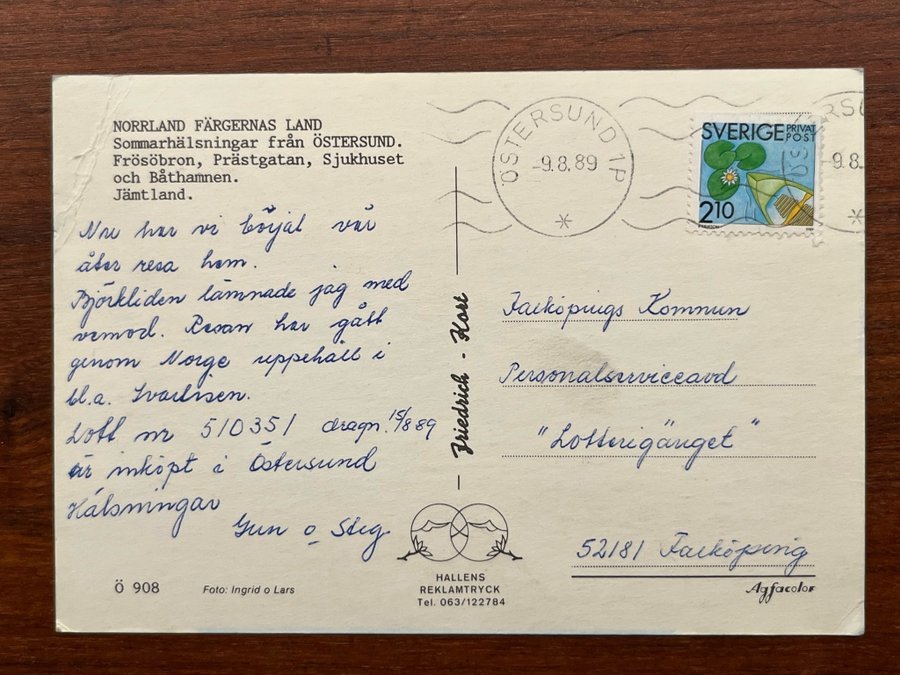 NORRLAND FÄRGERNAS LAND
Sommarhälsningar från ÖSTERSUND.
Frösöbron, Prästgatan, Sjukhuset
och Båthamnen.
Jämtland.
Nu har vi börjat vår
åter resa hem.
Björkliden lämnade jag med
vemod. Resan har gått
genom Norge uppehåll i
bl.a. Svartisen.
Lott nr 510351 dragn. 15/8 89
är inköpt i Östersund
Hälsningar
Gun o Stig
Ö 908
Foto: Ingrid o Lars
Friedrich - Kort
HALLENS
REKLAMTRYCK
Tel. 063/122784
ÖSTERSUND 1P
-9.8.89
SVERIGE PRIVAT
POST
2.10
-9.8.
Falköpings Kommun
Personalserviceavd
"Lotterigänget"
52181 Falköping
Agfacolor